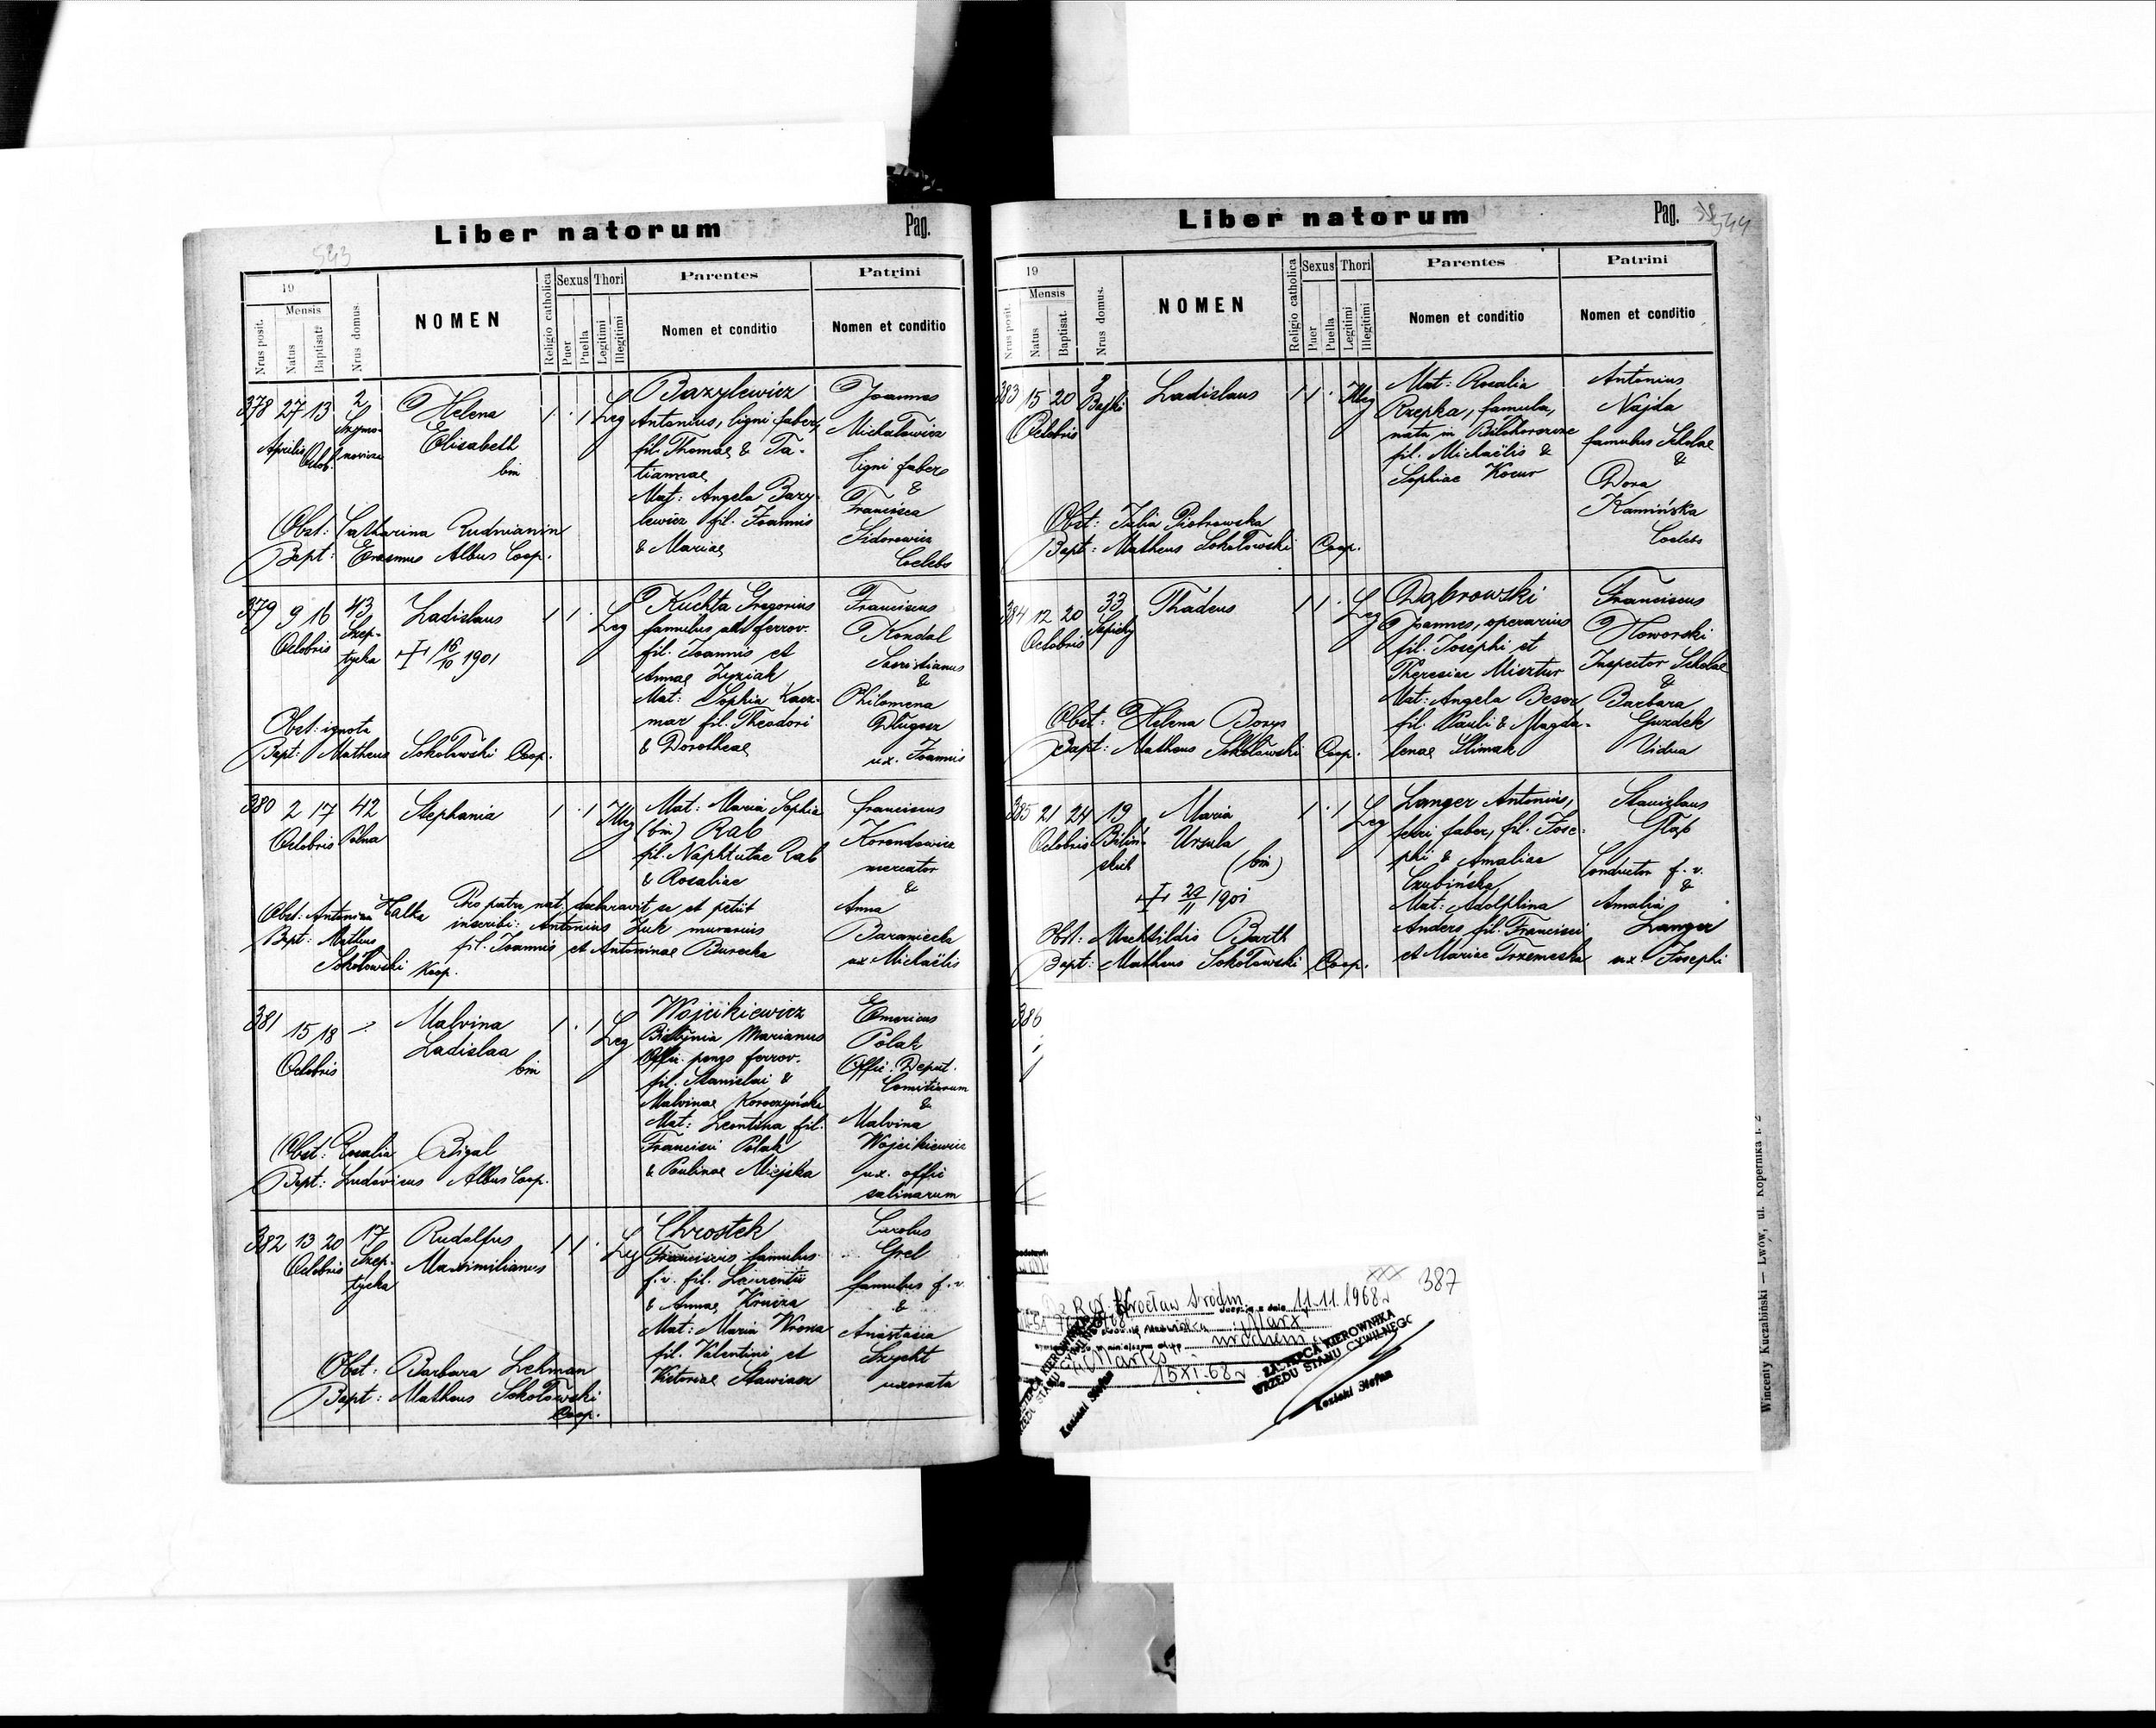 Liber natorum
Pag.
543
19
Mensis
Nrus posit.
Natus
Baptisat.
Nrus domus.
NOMEN
Religio catholica
Sexus
Puer
Puella
Thori
Legitimi
Illegitimi
Parentes
Nomen et conditio
Patrini
Nomen et conditio
378 27 13 2
Aprilis Octob.
Helena
Elisabeth
bin
1 · 1 Leg
Bazylewicz
Antonius, ligni faber,
fil. Thomae & Ta-
tiannae
Mat: Angela Bazy-
lewicz fil. Joannis
& Mariae
Joannes
Michalowicz
ligni faber
&
Francisca
Sidorowicz
Coelebs
Obst: Catharina Rudnianin
Bapt: Erasmus Albus Coop.
379 9 16 43
Octobris Szep-
tycka
Ladislaus
16/10 1901
1 1 · Leg
Kuchta Gregorius
famulus ferrov.
fil. Joannis et
Annae Zyziak
Mat: Sophia Kacz-
mar fil. Theodori
& Dorotheae
Franciscus
Kondal
Sacristianus
&
Philomena
Długosz
ux. Joannis
Obst: ignota
Bapt: Matheus Sokołowski Coop.
380 2 17 42
Octobris Polna
Stephania
1 · 1 Illeg
Mat: Maria Sophia
(bin) Rab
fil. Rab
& Rosaliae
Franciscus
Korendowicz
mercator
&
Anna
Baraniecka
ux Michaëlis
Obst: Antonina Halka
Pro patre nat. declaravit se et petiit
inscribi: Antonius Żuk murarius
fil. Joannis et Antoninae Burecka
Bapt: Matheus
Sokołowski Koop.
381 15 18
Octobris
Malvina
Ladislaa
bin
1 · 1 Leg
Wojcikiewicz
Marianus
Offic. ferrov.
fil. Stanislai &
Malvinae
Mat: Leontina fil.
Francisci Polak
& Paulinae Miejska
Emericus
Polak
Offic. Deput.
Comitiorum
&
Malvina
Wojcikiewicz
ux. offic
salinarum
Obst: Rosalia Bigal
Bapt: Ludovicus Albus Coop.
382 13 20 17
Octobris Szep-
tycka
Rudolfus
Maximilianus
1 1 · Leg
Chrostek
Franciscus famulus
f. v. fil. Laurentii
& Annae
Mat: Maria Wrona
fil. Valentini et
Victoriae
Carolus
Grel
famulus f. v.
&
Anastasia
Szycht
uxorata
Obst: Barbara Lehman
Bapt: Matheus Sokołowski
Coop.
Liber natorum
Pag.
544
19
Mensis
Nrus posit.
Natus
Baptisat.
Nrus domus.
NOMEN
Religio catholica
Sexus
Puer
Puella
Thori
Legitimi
Illegitimi
Parentes
Nomen et conditio
Patrini
Nomen et conditio
383 15 20 8
Octobris Bajki
Ladislaus
1 1 · Illeg
Mat: Rosalia
Rzepka, famula,
nata in
fil. Michaëlis &
Sophiae Kocur
Antonius
Najda
famulus Scholae
&
Dora
Kamińska
Coelebs
Obst: Julia Piotrowska
Bapt: Matheus Sokołowski Coop.
384 12 20 33
Octobris Sapiehy
Thadeus
1 1 · Leg
Dąbrowski
Joannes, operarius
fil. Josephi et
Theresiae Misztur
Mat: Angela Bezor
fil. Pauli & Magda-
lenae Slimak
Franciscus
Noworski
Inspector Scholae
&
Barbara
Guzdek
Vidua
Obst: Helena Borys
Bapt: Matheus Sokołowski Coop.
385 21 24 19
Octobris Biliń-
skich
Maria
Ursula
(bin)
1901
1 · 1 Leg
Langer Antonius,
ferri faber, fil. Jose-
phi & Amaliae
Czubińska
Mat: Adolphina
Anders fil. Francisci
et Mariae Trzemeska
Stanislaus
Głąb
Conductor f. v.
&
Amalia
Langer
ux. Josephi
Obst: Mechtildis Barth
Bapt: Matheus Sokołowski Coop.
386
387
Wrocław
11.11.1968
Marx
15 XI. 68
ZASTĘPCA KIEROWNIKA
URZĘDU STANU CYWILNEGO
Kozicki Stefan
Kozicki Stefan
Wincenty Kuczabiński — Lwów, ul. Kopernika l. 2